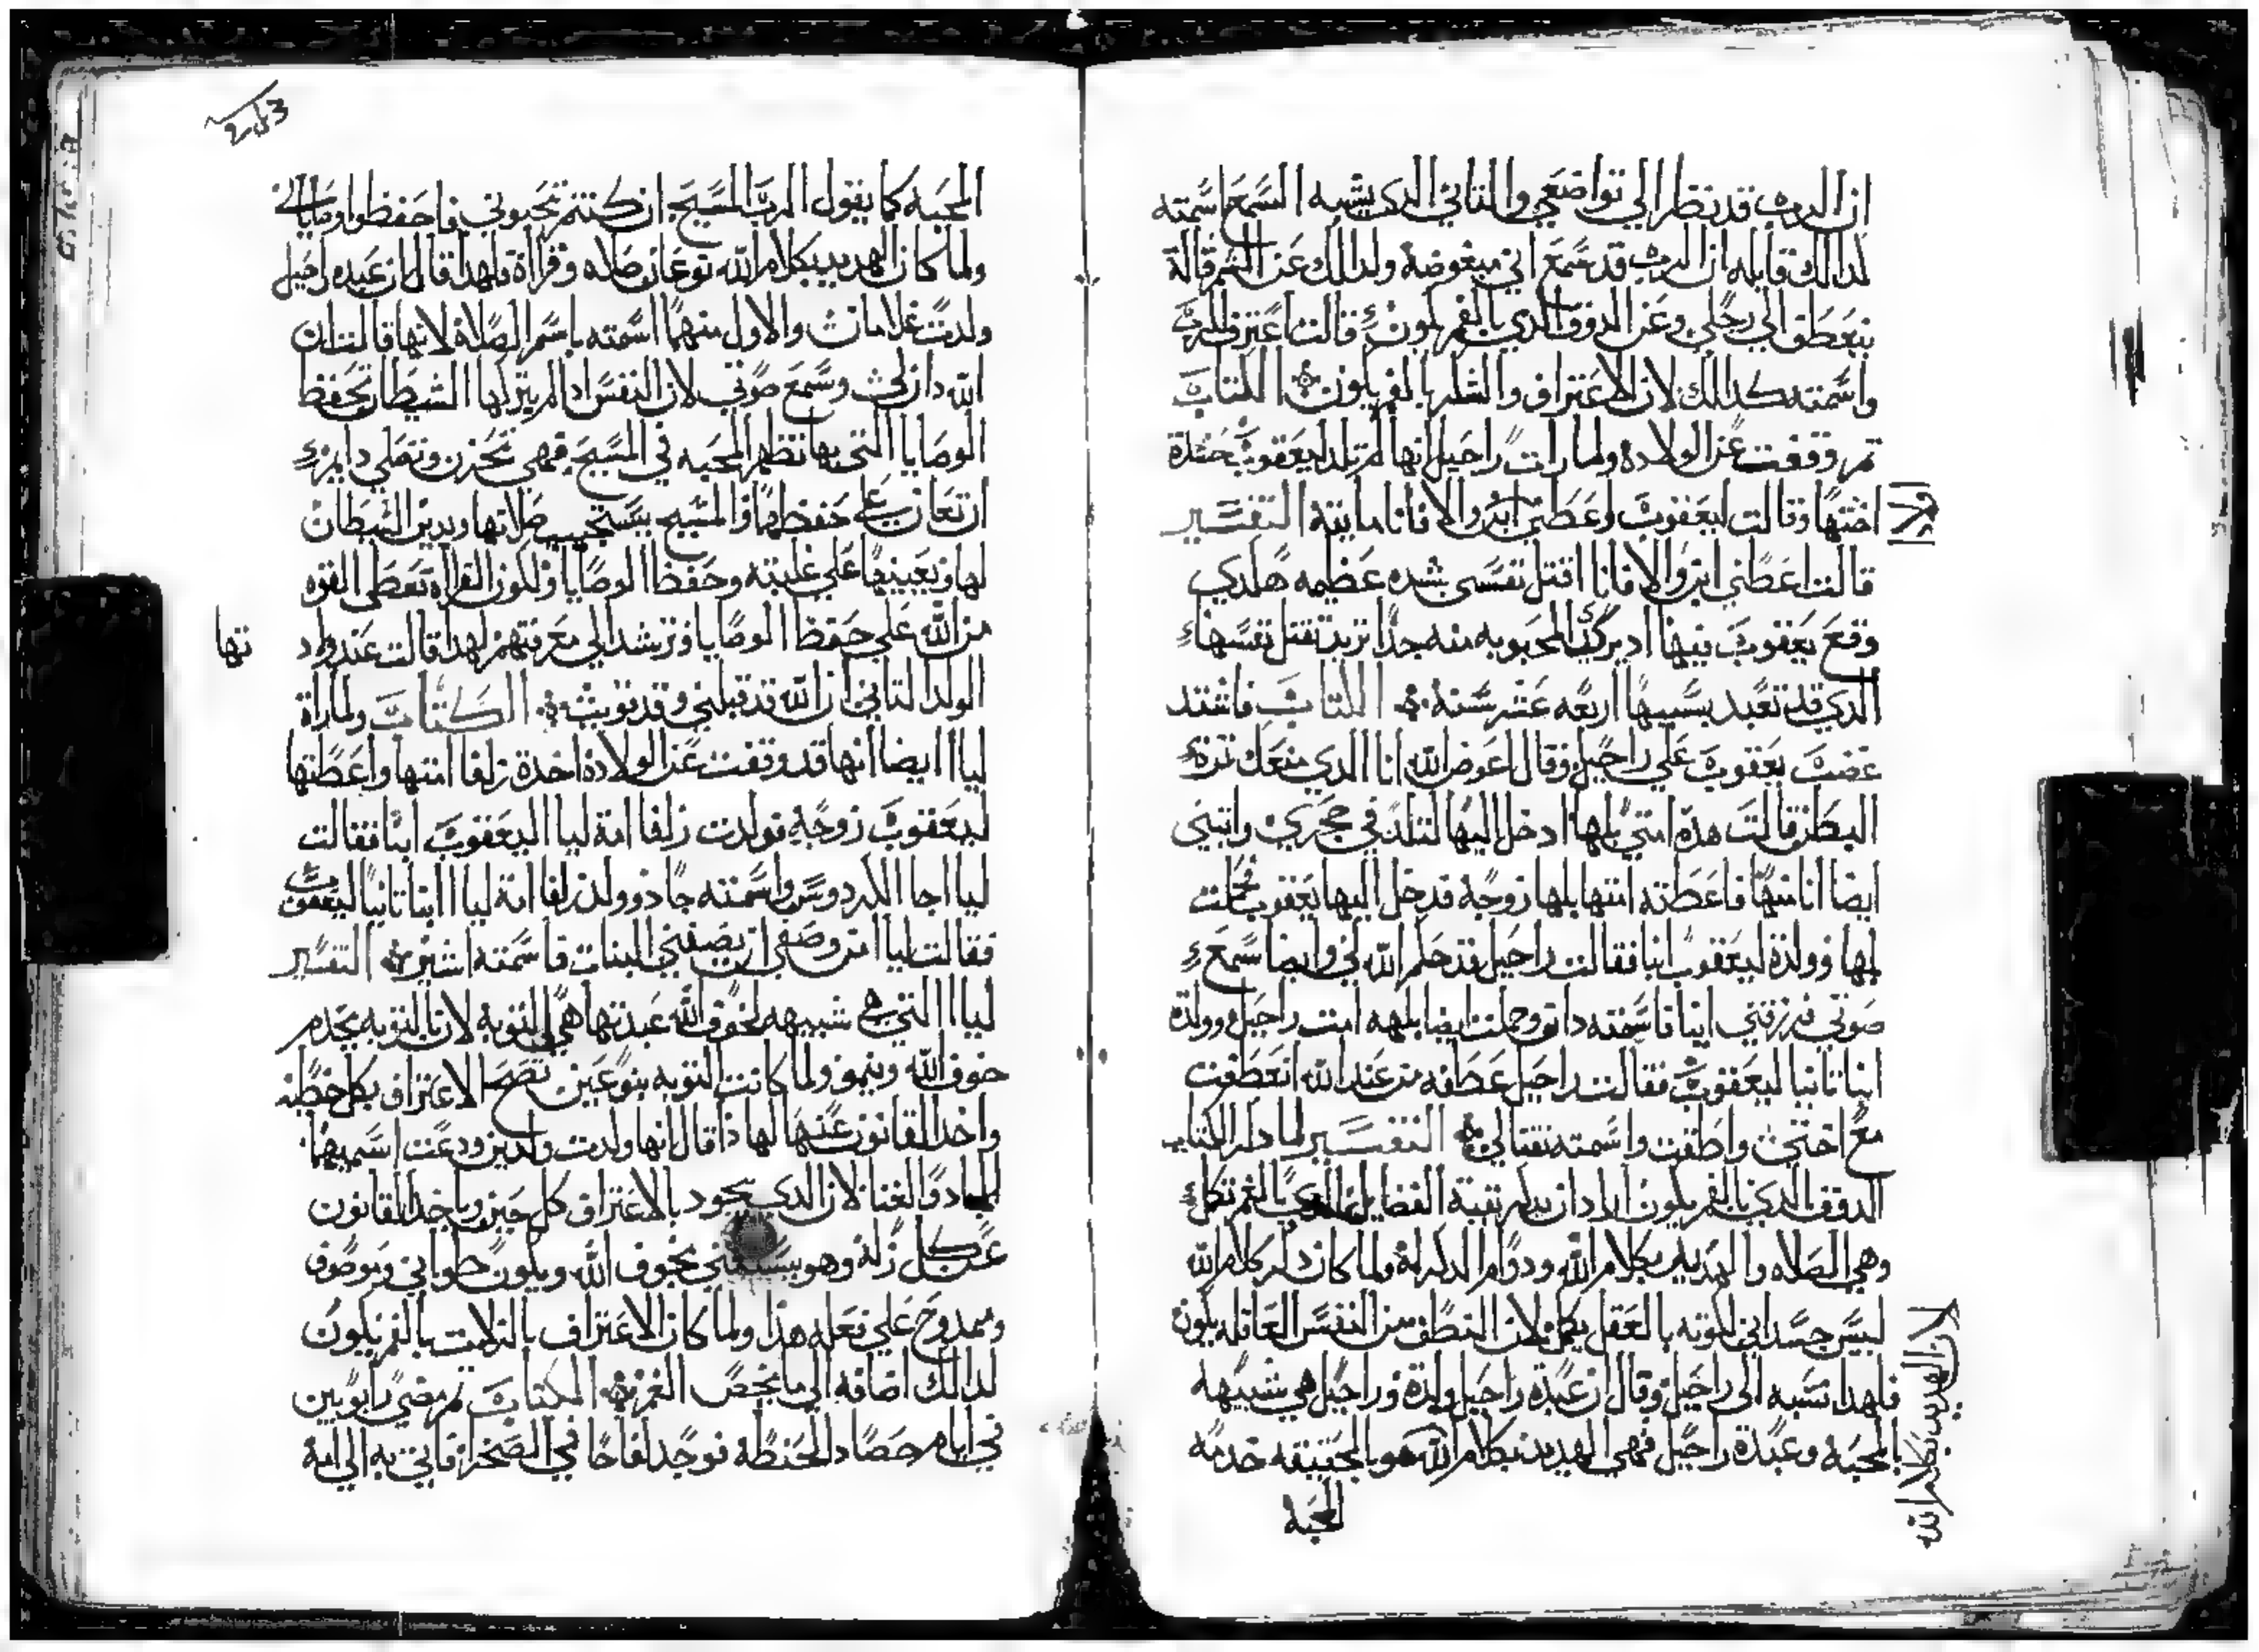 ان الرب قد نظر الي تواضعي والتاني الدي يشبه السمع اسمته
لدالك قايله ان الرب قد سمع اني مبغوضه ولدالك عن الشم قالة
ينعطف الي رجلي وعن الدوق الدي بالفم يكون قالت اعترف للرب
واسمته كدالك لان الاعتراف والشكر بالفم يكون الكتاب
تم وقفت عن الولاده ولما رات راحيل انها لم تلد ليعقوب حسدة
اختها وقالت ليعقوب اعطني ابن والا فانا مايتة التفسير
قالت اعطني ابن والا فانا اقتل نفسي بشده عظيمه هلدي
وقع يعقوب فيها اد يري المحبوبه منه جدا تريد تقتل نفسها
الدي قد تعبد بسببها اربعه عشر سنة الكتاب فاشتد
غضب يعقوب علي راحيل وقال اعوض الله انا الدي منعك تمرة
البطن قالت هده امتي بلها ادخل اليها لتلد في حجري وابتني
ايضا انا منها فاعطته امتها بلها زوجة فدخل اليها يعقوب فحملت
بلها وولدة ليعقوب ابنا فقالت راحيل قد حكم الله لي وايضا سمع
صوتي فرزقني ابنا فاسمته دان وحملت ايضا بلهه امت راحيل وولدة
ابنا تانيا ليعقوب فقالت راحيل عطافه من عند الله انعطفت
مع اختي واطقت واسمته نفتالي التفسير لما دكر الكتاب
الدوق الدي بالفم يكون اراد ان يدكر بقية الفضايل التي بالفم تكمل
وهي الصلاه والهديد بكلام الله ودوام الدكر له ولما كان دكر كلام الله
ليس جسداني لكونه بالعقل يكمل لان النطق من النفس العاقله يكون
فلهدا نسبه الي راحيل وقال ان عبدة راحيل ولدة وراحيل هي شبيهة
بالمحبة وعبدة راحيل فهي الهديد بكلام الله هو بالحقيقه خدمه
المحبة
لان الهديد بكلام الله
المحبه كما يقول الرب المسيح ان كنتم تحبوني فاحفظوا وصاياي
ولما كان الهديد بكلام الله نوعان صلاه وقراة فلهدا قال ان عبدة راحيل
ولدت غلامان والاول منهما اسمته باسم الصلاة لانها قالت ان
الله دانني وسمع صوتي لان النفس اد لم يتركها الشيطان تحفظ
الوصايا التي بها تظهر المحبه في المسيح فهي تحزن وتصلي دايم
ان تعان علي حفظهما والمسيح يستجيب صلاتها ويدين الشيطان
لها ويعينها علي غلبته وحفظ الوصايا ولكون القراة تعطي القوه
من الله علي حفظ الوصايا وترشد الي معرفتهم لهدا قالت عند ولاد
تها
الولد التاني ان الله قد قبلني وقد قويت الكتاب ولما راة
ليا ايضا انها قد وقفت عن الولادة اخدة زلفا امتها واعطتها
ليعقوب زوجة فولدت زلفا امة ليا ليعقوب ابنا فقالت
ليا اجا الكردوس واسمته جاد وولدة زلفا امة ليا ابنا تانيا ليعقوب
فقالت ليا من وصفي ان يصفني البنات فاسمته اشير التفسير
ليا التي هي شبيهه لخوف الله عبدتها هي التوبة لان التوبه تخدم
خوف الله وينمو ولما كانت التوبه بنوعين تصح الاعتراف بكل خطيه
واخد القانون عنها لهادا قال انها ولدت ولدين ودعت اسميهما
الجاد والغنا لان الدي يجود بالاعتراف كل حين وياخد القانون
عن كل زلة وهو يستغني بخوف الله ويكون طوباني وموصوف
وممدوح علي فعله هدا ولما كان الاعتراف بالزلات بالفم يكون
لدالك اضافه الي ما يخص الفم الكتاب تم مضي رابوبين
في ايام حصاد الحنطة فوجد لفاحا في الصحرا فاتي به الي امة